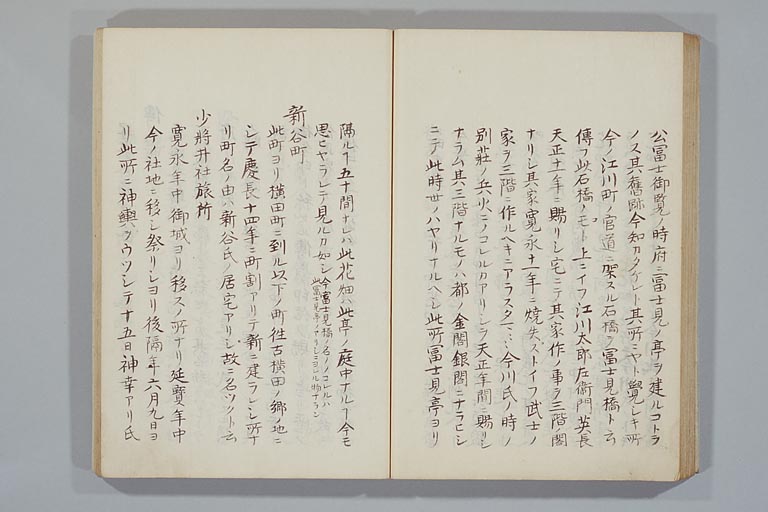 公冨士御覽ノ時府ニ冨士見ノ亭ヲ建ルコトヲ
ノス其舊跡今知カタケレト其所ニヤト覺シキ所
今ノ江川町ノ官道ニ架スル石橋ヲ冨士見橋ト云
傳フ此石橋ノモト上ニイフ江川太郎左衛門英長
天正十一年ニ賜リシ宅ニテ其家作ノ事ヲ三階ノ閣
ナリシ其家寛永十一年ニ燒失ストイフ武士ノ
家ヲ三階ニ作ルヘキニアラス今川氏ノ時ノ
別莊ノ兵火ニノコレルカアリシヲ天正年間ニ賜リシ
ナラム其三階ナルモノハ都ノ金閣銀閣ニナラヒシ
ニテ此時世ノハヤリナルヘシ此所冨士見亭ヨリ
隔ルヿ五十間ナレハ此花畑ハ此亭ノ庭中ナルヿ今モ
思ヒヤラレテ見ルカ如シ今冨士見橋ノ名ノノコレルハ
此冨士見亭ノアリシニヨレル物ナラン
新谷町
此町ヨリ橫田町ニ到ル以下ノ町往古橫田ノ鄕ノ地ニ
シテ慶長十四年ニ町割アリテ新ニ建ラレシ所ナ
リ町名ノ由ハ新谷氏ノ居宅アリシ故ニ名ツクト云
少將井社旅所
寛永年中御城ヨリ移スノ所ナリ延寶年中
今ノ社地ニ移シ祭リシヨリ後隔年六月九日ヨ
リ此所ニ神輿ヲウツシテ十五日神幸アリ氏